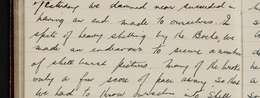 Yesterday we damned near succeeded in
having an end made to ourselves. In
spite of heavy shelling by the Boche, we
made an endeavour to secure a number
of shell burst pictures. Many of the broke
only a few score of paces away so that
we had to throw ourselves into shell